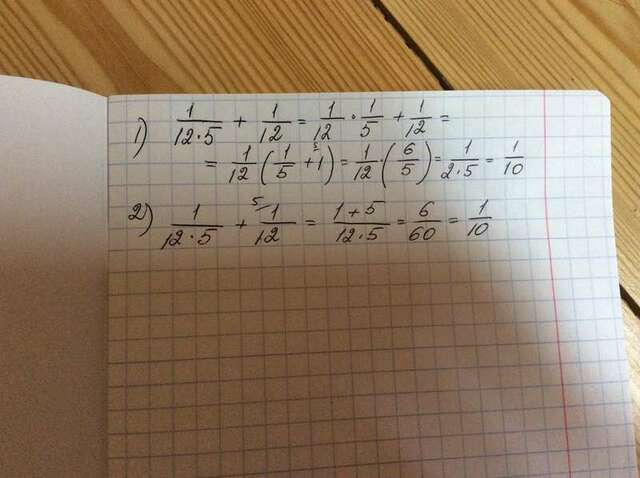 1) 1/(12·5) + 1/12 = 1/12 · 1/5 + 1/12 =
= 1/12 (1/5 + 1^5) = 1/12 · (6/5) = 1/(2·5) = 1/10
2) 1/(12·5) + ^5 1/12 = (1+5)/(12·5) = 6/60 = 1/10